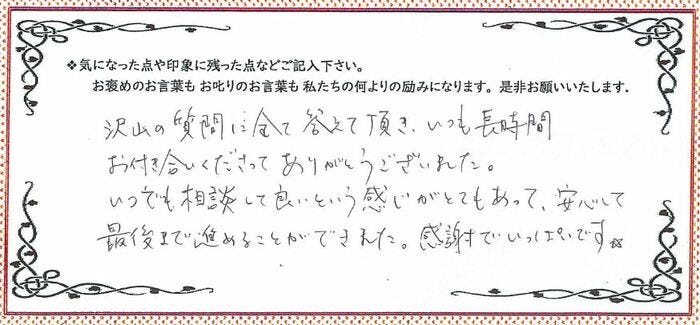 ❖気になった点や印象に残った点などご記入下さい。
お褒めのお言葉も お叱りのお言葉も 私たちの何よりの励みになります。是非お願いいたします.
沢山の質問に全て答えて頂き、いつも長時間
お付き合いくださってありがとうございました。
いつでも相談して良いという感じがとてもあって、安心して
最後まで進めることができました。感謝でいっぱいです☆